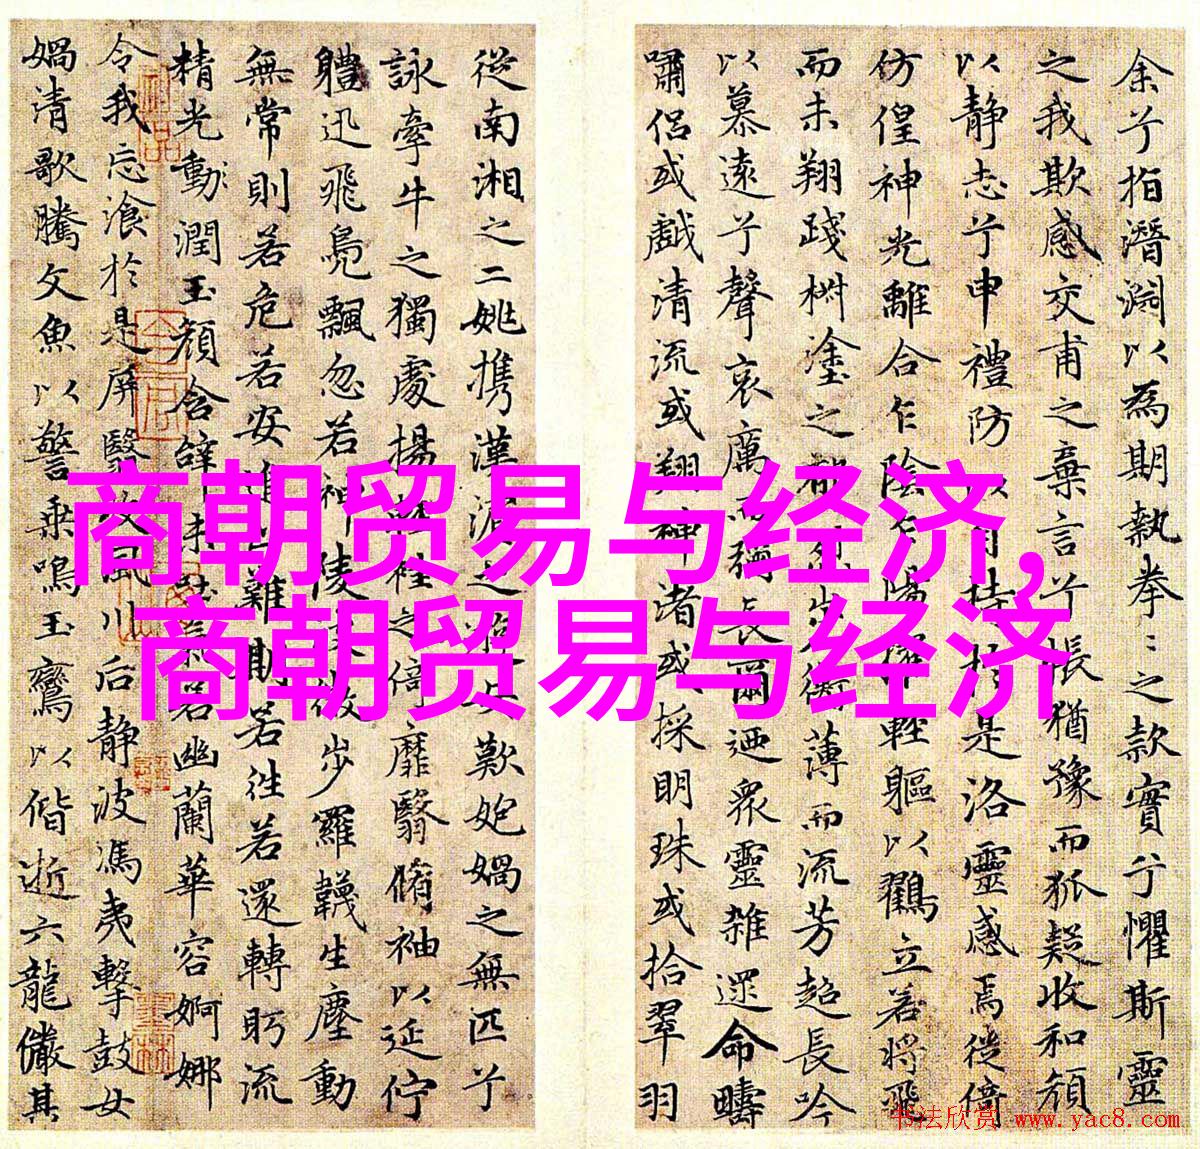 商朝贸易与经济,
商朝贸易与经济
余兮指潛淵以為期執拳〻之款實兮懼斯靈
之我欺感交甫之棄言兮悵猶豫而狐疑收和顔
以静志兮申禮防以自持於是洛靈感焉徙倚
仿偟神光離合乍陰乍陽擢輕軀以鶴立若將飛
而未翔踐椒塗之郁烈步衡薄而流芳超長吟
以慕遠兮聲哀厲而彌長爾迺衆靈雜遝命疇
嘯侣或戲清流或翔神渚或採明珠或拾翠羽
從南湘之二姚攜漢濱之游女歎匏媧之無匹兮
詠牽牛之獨處揚輕袿之倚靡翳脩袖以延佇
體迅飛鳧飄忽若神陵波微步羅韈生塵動
無常則若危若安進止難期若往若還轉眄流
精光動潤玉顔含辭未吐氣若幽蘭華容婀娜
令我忘飡於是屏翳收風川后静波馮夷擊鼓女
媧清歌騰文魚以警乗鳴玉鸞以偕逝六龍儼其
书法欣赏 www.yac8.com